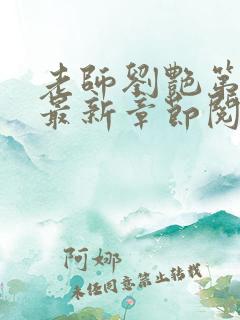 老師劉艷第
最新章節閱
阿娜
未经同意禁止转载